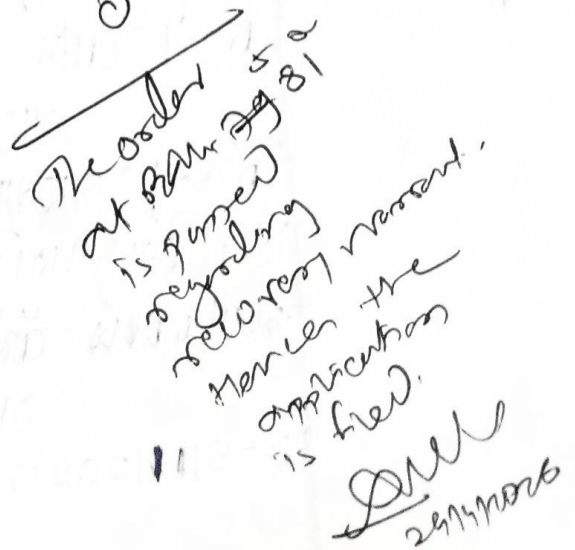 The order
at Exh. 79 81
is passed
regarding
recovery warrant.
Hence the
application
is filed.